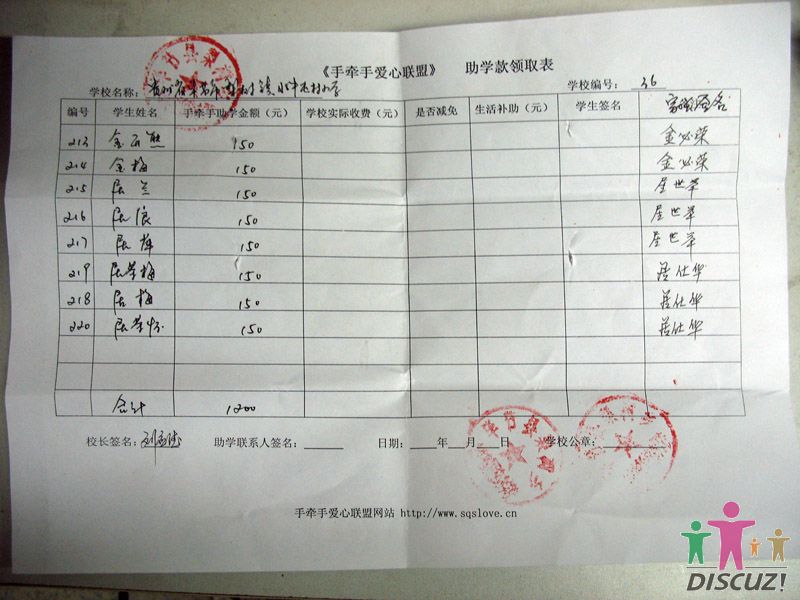 《手牵手爱心联盟》 助学款领取表
学校名称: 贵州省 小学 学校编号: 36
编号 学生姓名 手牵手助学金额(元) 学校实际收费(元) 是否减免 生活补助(元) 学生签名 家长签名
213 金 熊 150 金必荣
214 金梅 150 金必荣
215 居兰 150 居世华
216 居浪 150 居世华
217 居 150 居世华
219 居 梅 150 居仕华
218 居梅 150 居仕华
220 居 150 居仕华
合计 1200
校长签名: 助学联系人签名: 日期: 年 月 日 学校公章:
手牵手爱心联盟网站 http://www.sqslove.cn
DISCUZ!